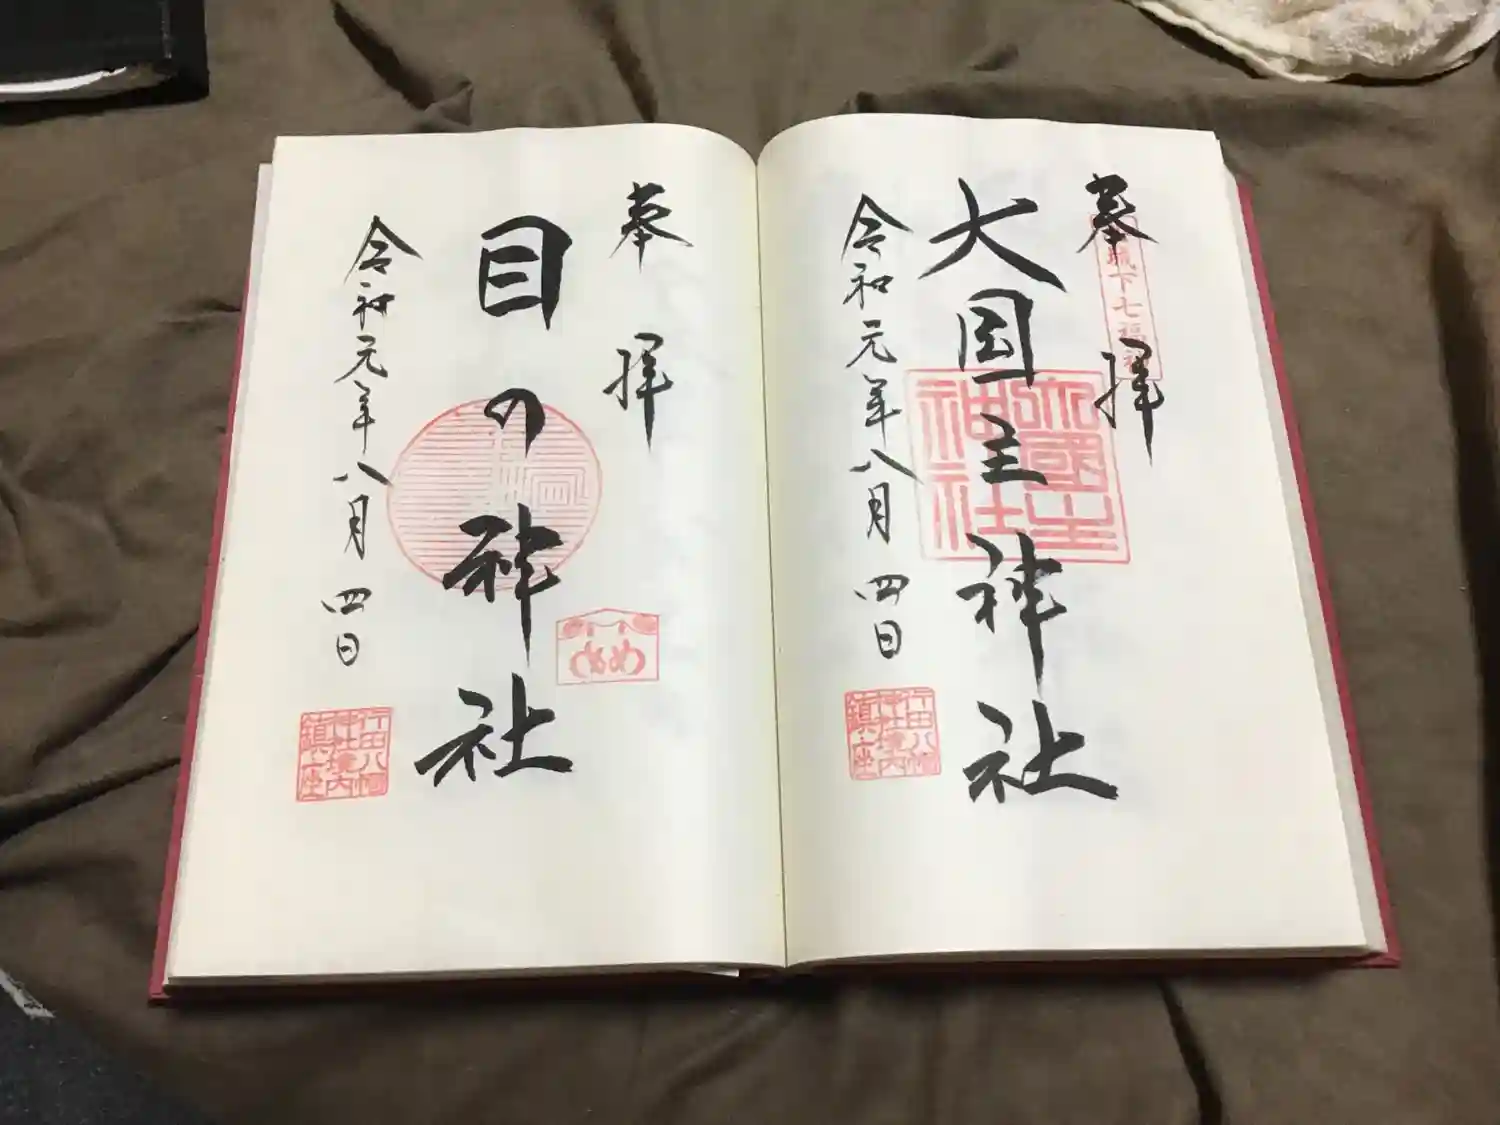 奉拝
下七福神
大国主神社
大國主神社
令和元年八月四日
行田八幡神社境内鎮座
奉拝
目の神社
め め
令和元年八月四日
行田八幡神社境内鎮座